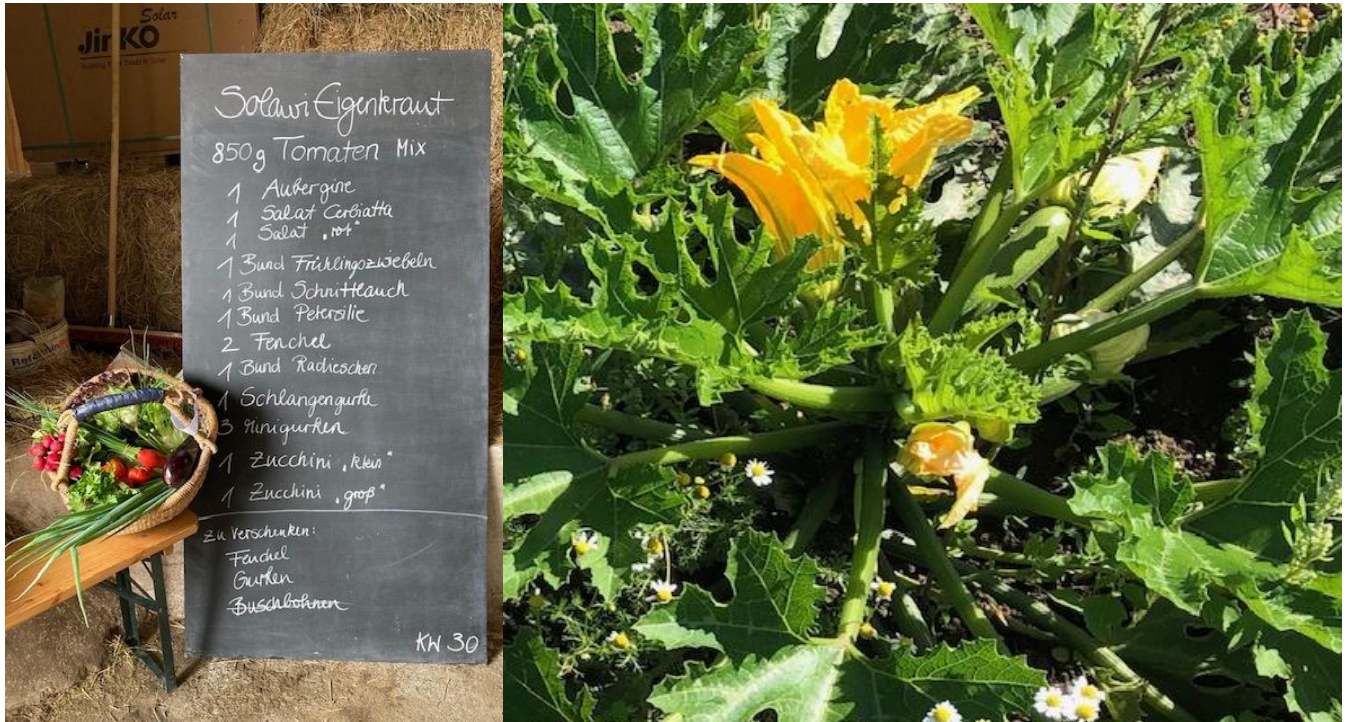 Solar
JinKO
Building Your Trust in Solar
Solawi Eigenkraut
850g Tomaten Mix
1 Aubergine
1 Salat Cerbiatta
1 Salat "rot"
1 Bund Frühlingszwiebeln
1 Bund Schnittlauch
1 Bund Petersilie
2 Fenchel
1 Bund Radieschen
1 Schlangengurke
3 Minigurken
1 Zucchini "klein"
1 Zucchini "groß"
zu verschenken:
Fenchel
Gurken
Buschbohnen
KW 30